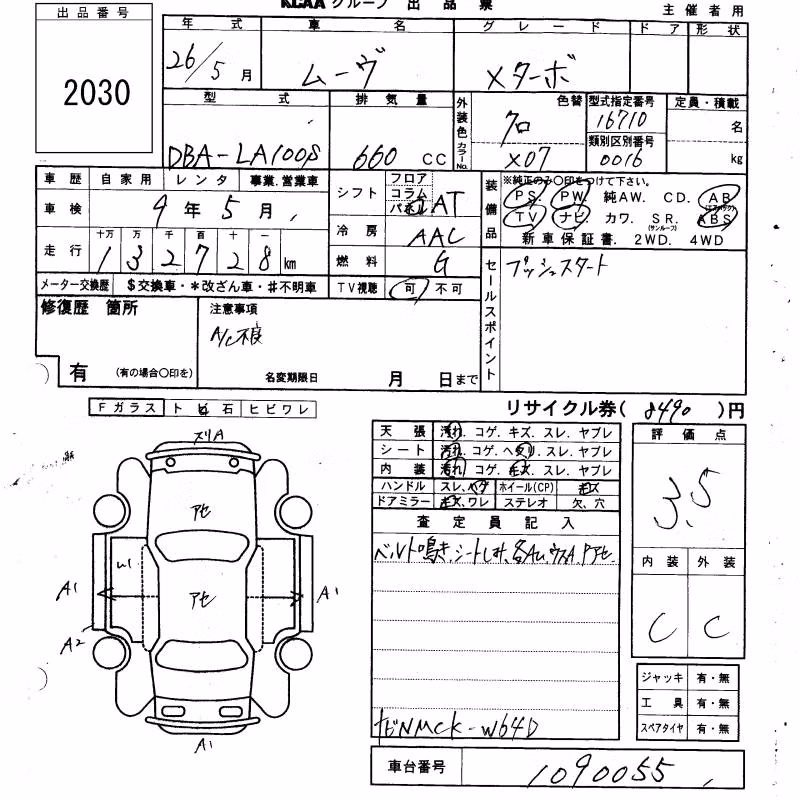 KCAA グループ 出品票
主催者用
出品番号
2030
年式 車名 グレード ドア 形状
26/5月 ムーヴ Xターボ
型式 排気量 外装色 カラーNo. 色替 型式指定番号 定員・積載
DBA-LA100S 660 CC クロ X07 16710 名
類別区別番号
0016 kg
車歴 自家用 レンタ 事業.営業車
車検 9年5月
走行 十万 万 千 百 十 一
132728 km
メーター交換歴 $交換車・*改ざん車・#不明車
シフト フロア コラム パネル AT
冷房 AAC
燃料 G
TV視聴 可 不可
装備品 ※純正のみ〇印をつけて下さい。
PS. PW. 純AW. CD. AB (エアバック)
TV ナビ カワ. SR. (サンルーフ) ABS
新車保証書. 2WD. 4WD
セールスポイント プッシュスタート
修復歴 箇所
有 (有の場合〇印を)
注意事項
A/C不良
名変期限日 月 日まで
リサイクル券( 8490 )円
Fガラス トビ石 ヒビワレ
天張 汚れ. コゲ. キズ. スレ. ヤブレ
シート 汚れ. コゲ. ヘタリ. スレ. ヤブレ
内装 汚れ. コゲ. キズ. スレ. ヤブレ
ハンドル スレ. ハゲ ホイール(CP) キズ
ドアミラー キズ. ワレ ステレオ 欠. 穴
査定員記入
ベルト鳴き.シートしみ.各AU.ウスA.Pアセ.
ナビNMCK-W64D
評価点
3.5
内装 外装
C C
ジャッキ 有・無
工具 有・無
スペアタイヤ 有・無
車台番号 1090055
スリA
アセ
アセ
A1
A2
A1
A1